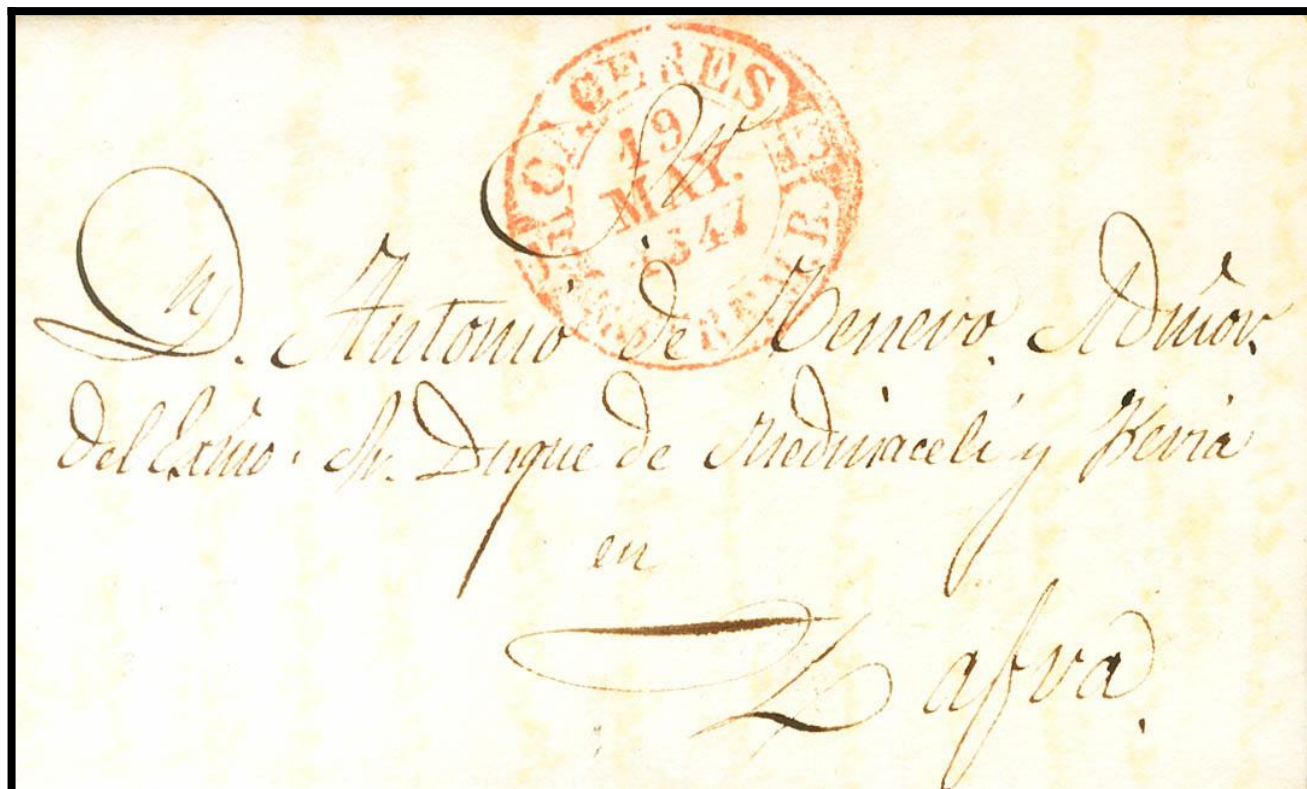 CACERES
19
MAY.
1847
Sr
Dn. Antonio de Tenero. Admor.
del Exmo. Sr. Duque de Medinaceli y Feria
en
Zafra.